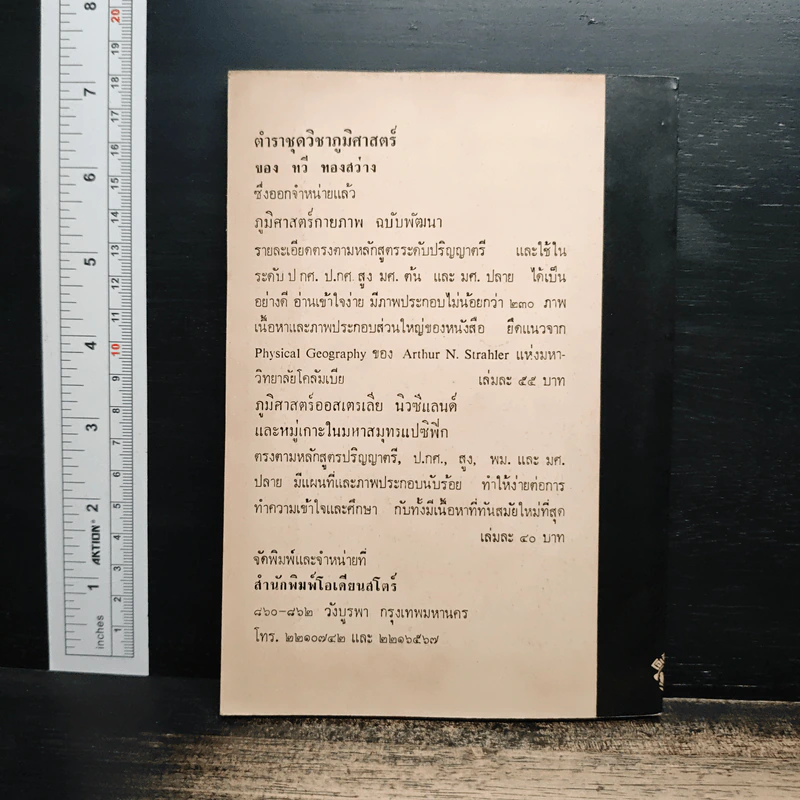 ตำราชุดวิชาภูมิศาสตร์
ของ ทวี ทองสว่าง
ซึ่งออกจำหน่ายแล้ว
ภูมิศาสตร์กายภาพ ฉบับพัฒนา
รายละเอียดตรงตามหลักสูตรระดับปริญญาตรี และใช้ใน
ระดับ ป กศ. ป.กศ. สูง มศ. ต้น และ มศ. ปลาย ได้เป็น
อย่างดี อ่านเข้าใจง่าย มีภาพประกอบไม่น้อยกว่า ๒๓๐ ภาพ
เนื้อหาและภาพประกอบส่วนใหญ่ของหนังสือ ยึดแนวจาก
Physical Geography ของ Arthur N. Strahler แห่งมหา-
วิทยาลัยโคลัมเบีย เล่มละ ๕๕ บาท
ภูมิศาสตร์ออสเตรเลีย นิวซีแลนด์
และหมู่เกาะในมหาสมุทรแปซิฟิก
ตรงตามหลักสูตรปริญญาตรี, ป.กศ., สูง, พม. และ มศ.
ปลาย มีแผนที่และภาพประกอบนับร้อย ทำให้ง่ายต่อการ
ทำความเข้าใจและศึกษา กับทั้งมีเนื้อหาที่ทันสมัยใหม่ที่สุด
เล่มละ ๔๐ บาท
จัดพิมพ์และจำหน่ายที่
สำนักพิมพ์โอเดียนสโตร์
๘๖๐-๘๖๒ วังบูรพา กรุงเทพมหานคร
โทร. ๒๒๑๐๗๔๒ และ ๒๒๑๖๕๖๗
8
7
6
5
4
3
2
1
inches
AKTION
20
19
18
17
16
15
14
13
12
11
10
9
8
7
6
5
4
3
2
1